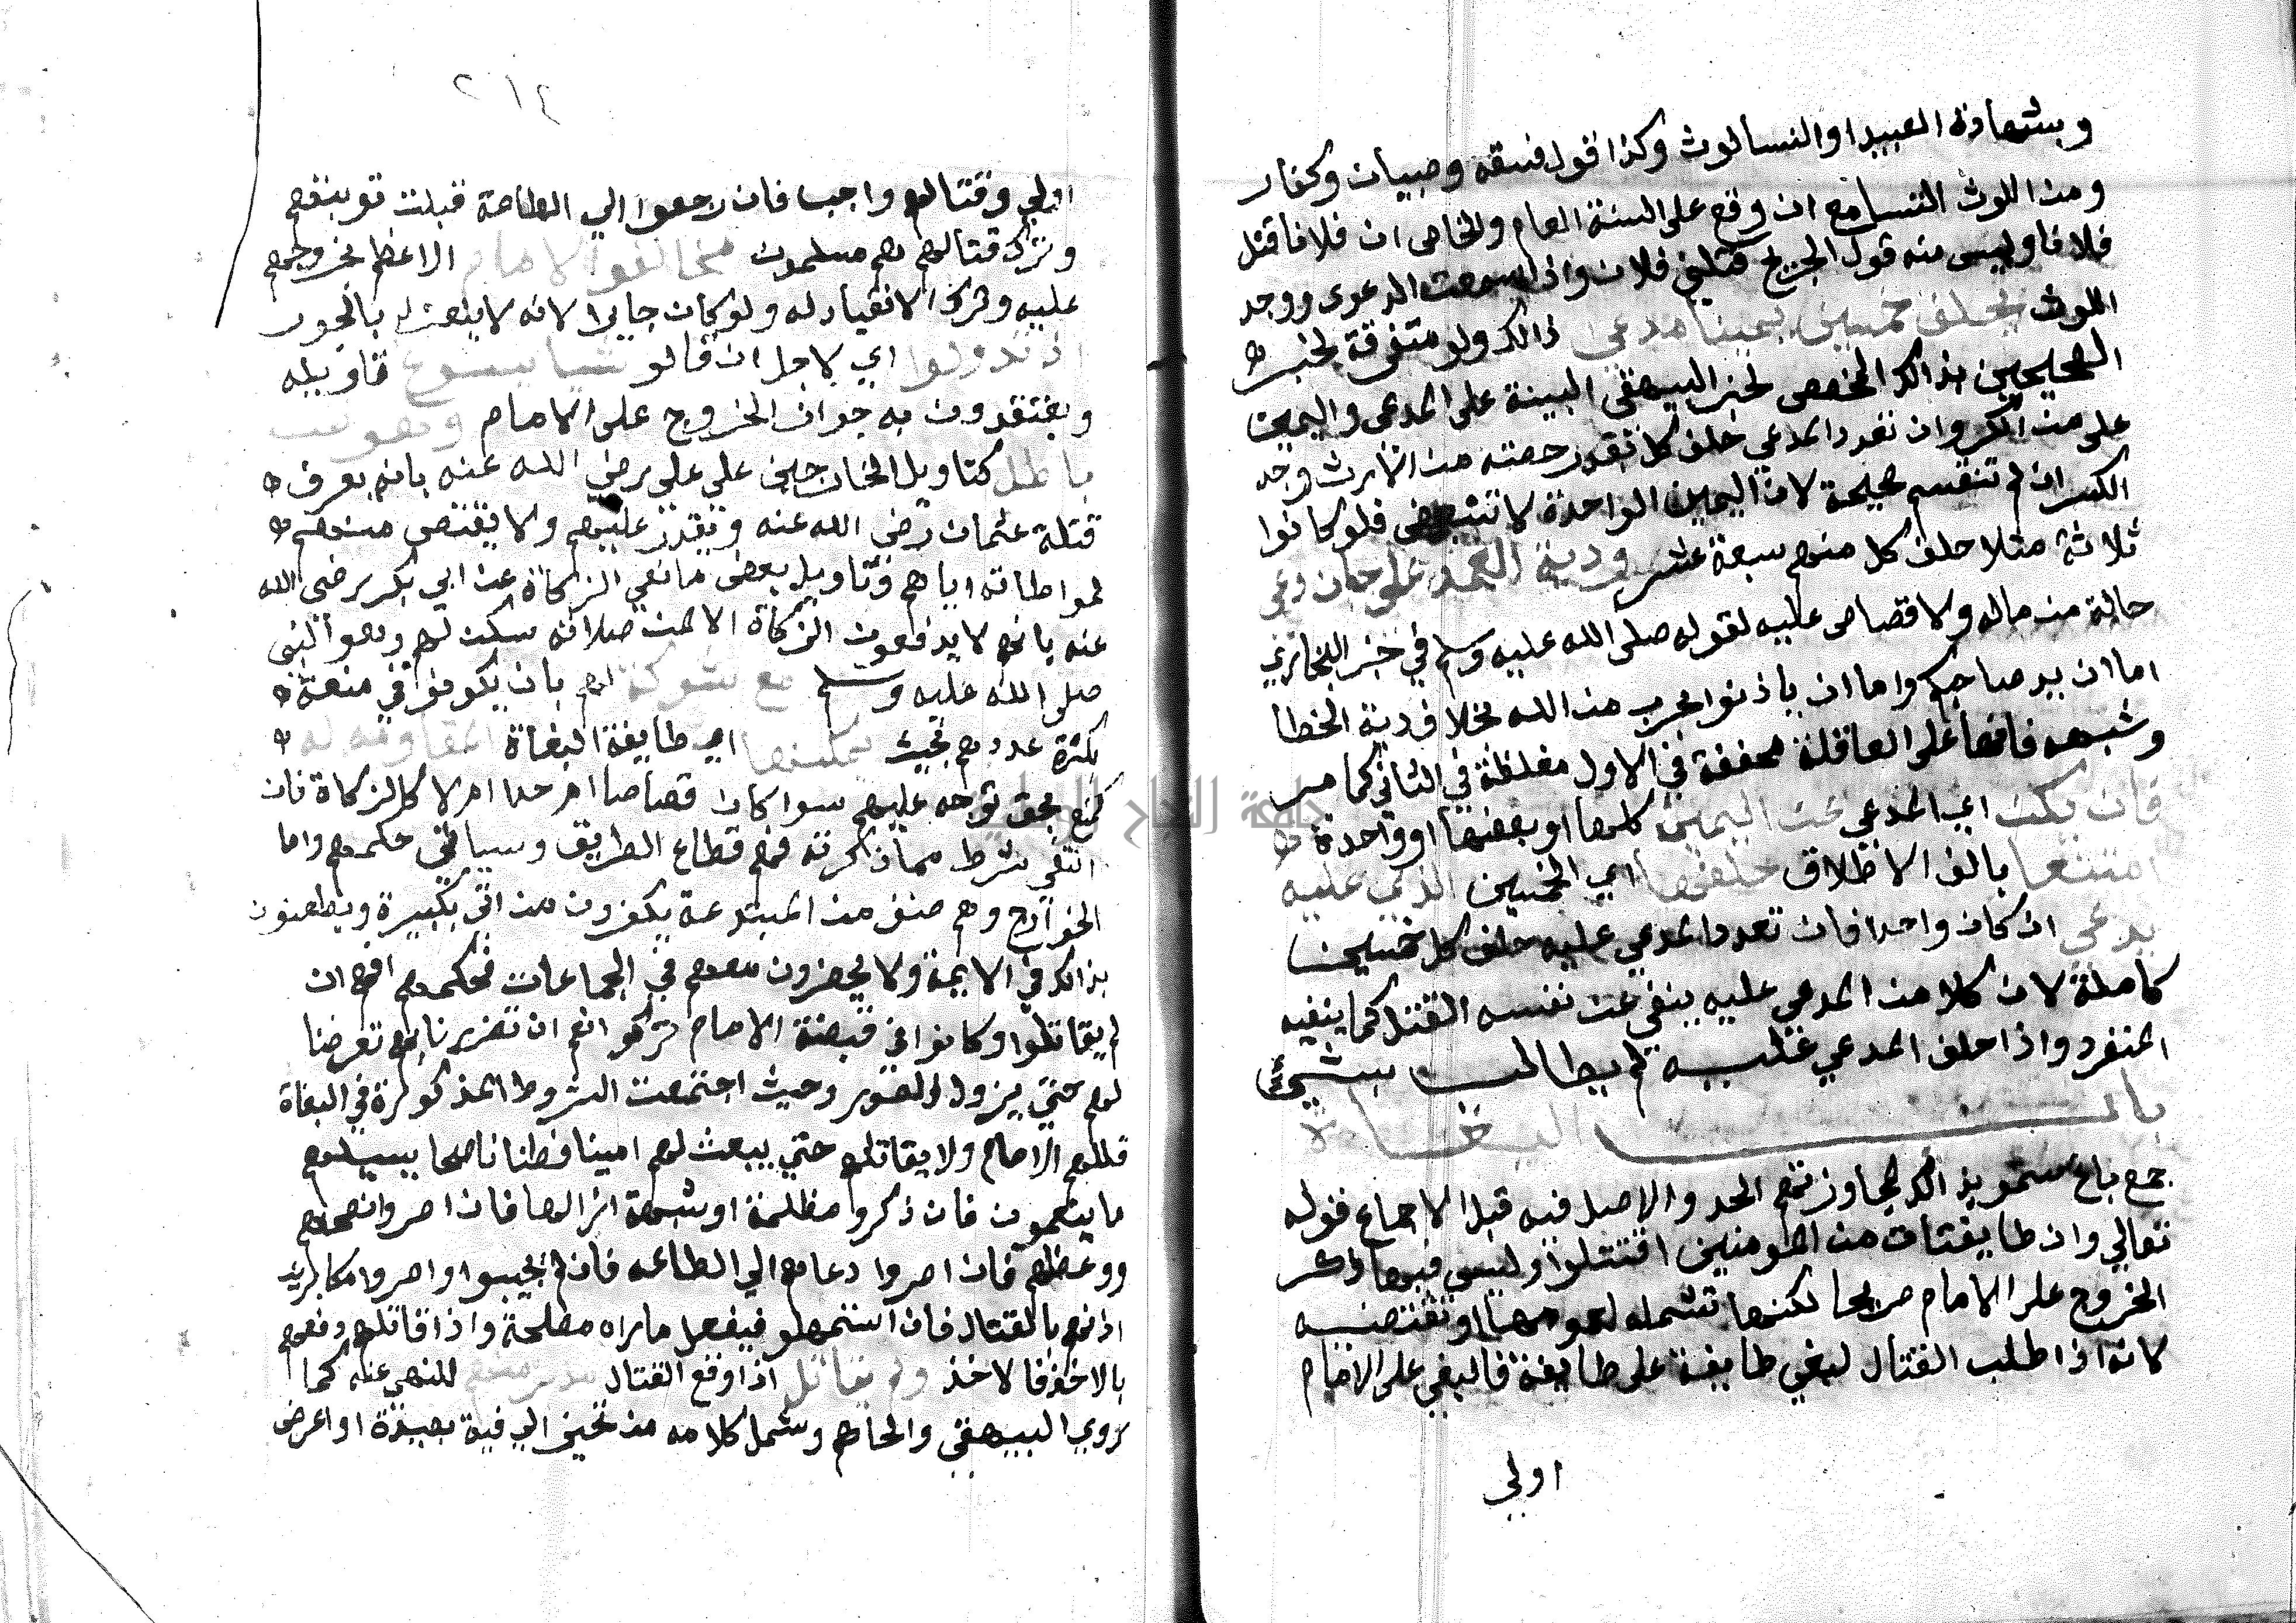 وبشهادة العبيد او النسا لوث وكذا قول فسقه وصبيان وكفار
ومن اللوث التسامع ان وقع على السنة العام والخاص ان فلانا قتل
فلانا وليس منه قول الجريح قتلني فلان واذا سمعت الدعوى ووجد
اللوث يحلف خمسين يمينا مدعي ذالك ولو متفرقة لخبر
الصحيحين بذالك المخصص لخبر البيهقي البينة على المدعى واليمين
على من انكر وان تعدد المدعي حلف كل بقدر حصته من الارث وجبر
الكسر ان لم تنقسم صحيحة لان اليمين الواحدة لا تتبعض فلو كانوا
ثلاثة مثلا حلف كل منهم سبعة عشر ودية العمد على جان وعى
حالة من ماله ولا قصاص عليه لقوله صلى الله عليه وسلم في خبر البخاري
اما ان يد صاحبكم واما ان ياذنوا بحرب من الله بخلاف دية الخطا
وشبهه فانها على العاقلة مخففة في الاول مغلظة في الثاني كما مر
فان نكث اي المدعي عن اليمين كلها او بعضها او واحدة
امتنعا بالف الاطلاق حلفها اي الخمسين الذي عليه
يدعي ان كان واحدا فان تعدد المدعي عليه حلف كل خمسين
كاملة لان كلا من المدعي عليه ينفي عن نفسه القتل كما ينفيه
المنفرد واذا حلف المدعي عليه لم يطالب بشيء
باب البغاة
جمع باغ سمو بذالك لمجاوزتهم الحد والاصل فيه قبل الاجماع قوله
تعالي وان طايفتان من المومنين اقتتلوا وليس فيها ذكر
الخروج على الامام صريحا لكنها تشمله لعومها او تقتضيه
لانه اذا طلب القتال لبغي طايفة على طايفة فالبغي على الامام
اولي
٢١٤
اولي وقتالهم واجب فان رجعوا الي الطاعة قبلت توبتهم
وترك قتالهم هم مسلمون مخالفوا الامام الاعظم بخروجهم
عليه وترك الانقياد له ولو كان جايرا لانه لا ينعزل بالجور
اذ تاولوا اي لاجل ان قالو شيا يسوغ تاويله
ويعتقدون به جواز الخروج على الامام وهو
باطل كتاويل الخارجين على علي رضي الله عنه بانه يعرف
قتلة عثمان رضي الله عنه ويقدر عليهم ولا يقتص منهم
لمواطاته اياهم وتاويل بعض مانعي الزكاة عن ابي بكر رضي الله
عنه بانهم لا يدفعون الزكاة الا لمن صلاته سكن لهم وهو النبى
صلى الله عليه وسلم مع شوكة لهم بان يكونوا في منعة
بكثرة عددهم بحيث يمكنها اي طايفة البغاة المقاومه له
كمنع بحق توجه عليهم سوا كان قصاصا ام حدا ام لا كالزكاة فان
انتفي شرط مما ذكرته فهم قطاع الطريق وسياتي حكمهم واما
الخوارج وهم صنف من المبتدعة يكفرون من اتى بكبيرة ويطعنون
بذالك في الايمة ولا يحضرون معهم في الجماعات فحكمهم انهم ان
لم يقاتلوا وكانوا في قبضة الامام تركوا نعم ان تضررنا بهم تعرضنا
لهم حتي يزول الضرر وحيث اجتمعت الشروط المذكورة في البغاة
قتلهم الامام ولا يقاتلهم حتي يبعث لهم امينا فطنا ناصحا يسيلهم
ما ينقمون فان ذكروا مظلمة او شبهة ازالها فان اصروا نصحهم
ووعظهم فان اصروا دعاهم الي الطاعه فان لم يجيبوا واصروا مكابرين
اذنهم بالقتال فان استمهلو فيفعل ما راه مصلحة واذا قاتلهم دفعهم
بالاخف فالاخف ولم يقاتل اذا وقع القتال مدبر منهم للنهي عنه كما
روي البيهقي والحاكم وشمل كلامه من تحيز الي فية بعيدة او اعرض